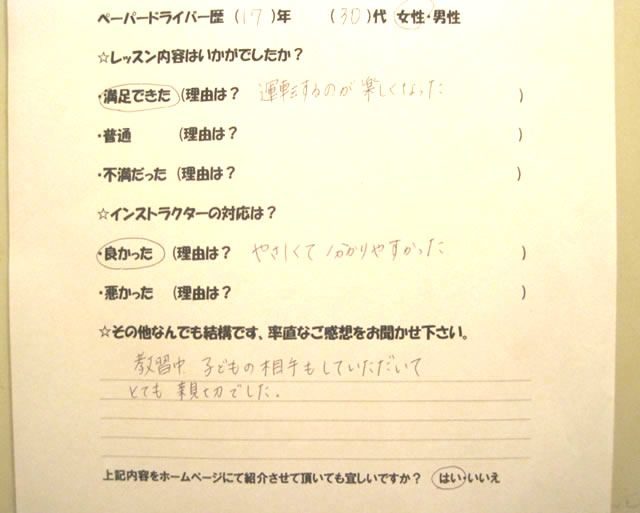 ペーパードライバー歴 (17)年 (30)代 女性・男性
☆レッスン内容はいかがでしたか？
・満足できた (理由は？ 運転するのが楽しくなった )
・普通 (理由は？ )
・不満だった (理由は？ )
☆インストラクターの対応は？
・良かった (理由は？ やさしくて 分かりやすかった )
・悪かった (理由は？ )
☆その他なんでも結構です、率直なご感想をお聞かせ下さい。
教習中 子どもの相手もしていただいて
とても 親切でした。
上記内容をホームページにて紹介させて頂いても宜しいですか？ はい・いいえ